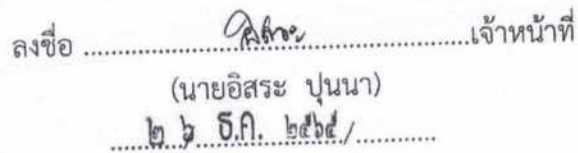 ลงชื่อ ........................................................เจ้าหน้าที่
(นายอิสระ ปุนนา)
๒ ๖ ธ.ค. ๒๕๖๔/............